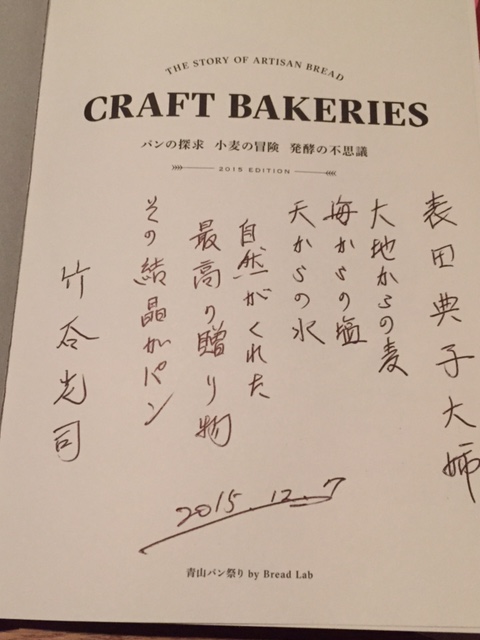 THE STORY OF ARTISAN BREAD
CRAFT BAKERIES
パンの探求 小麦の冒険 発酵の不思議
2015 EDITION
表田典子大姉
大地からの麦
海からの塩
天からの水
自然がくれた
最高の贈り物
その結晶がパン
竹谷光司
2015.12.7
青山パン祭り by Bread Lab